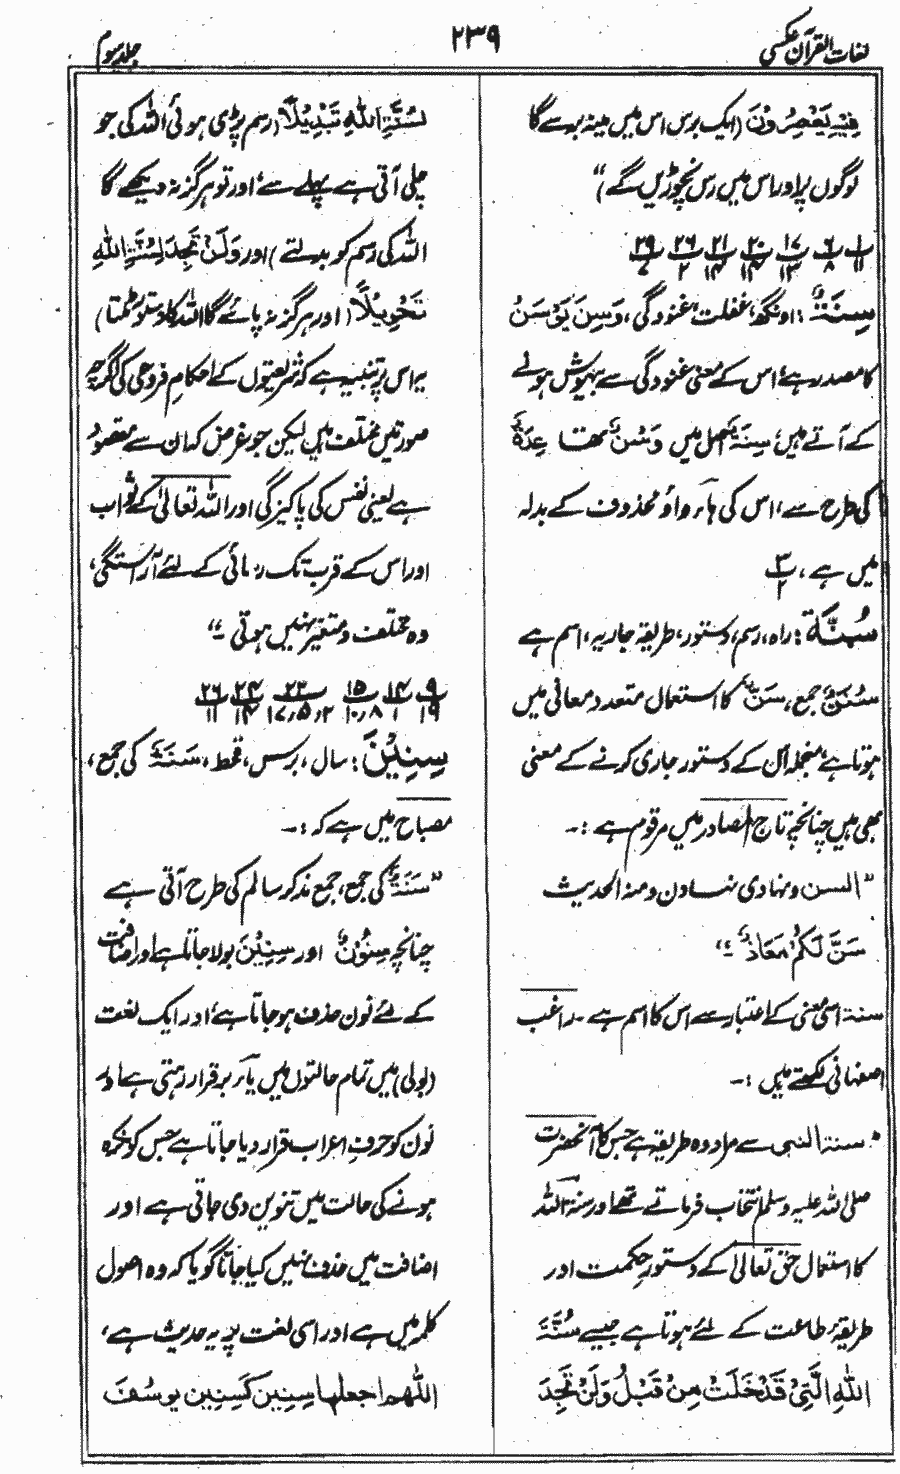 لغات القرآن عکسی
۲۳۹
جلد سوم
فِیْهِ یَعْصِرُوْنَ (ایک برس اس میں مینہ برسے گا
لوگوں پر اور اس میں رس نچوڑیں گے)"
سِنَةٌ: اونگھ، غفلت، غنودگی، وَسِنَ یَوْسَنُ
کا مصدر ہے، اس کے معنی غنودگی سے بیہوش ہونے
کے آتے ہیں، سِنَةٌ اصل میں وَسْنٌ تھا عِدَةٌ
کی طرح سے، اس کی ہاء واؤ محذوف کے بدلہ
میں ہے، ۳/۲
سُنَّةٌ: راہ، رسم، دستور، طریقہ جاریہ، اسم ہے
سُنَنٌ جمع، سَنَّ کا استعمال متعدد معانی میں
ہوتا ہے منجملہ ان کے دستور جاری کرنے کے معنی
بھی ہیں چنانچہ تاج المصادر میں مرقوم ہے :-
"السن و نہادی نہادن ومنہ الحدیث
سَنَّ لَکُمْ مَعَاذٌ"
سنۃ اسی معنی کے اعتبار سے اس کا اسم ہے۔ راغب
اصفہانی لکھتے ہیں :-
"سنۃ النبی سے مراد وہ طریقہ ہے جس کا آنحضرت
صلی اللہ علیہ وسلم انتخاب فرماتے تھے اور سنۃ اللہ
کا استعمال حق تعالیٰ کے دستور حکمت اور
طریقۂ طاعت کے لئے ہوتا ہے جیسے سُنَّةَ
اللهِ الَّتِیْ قَدْ خَلَتْ مِنْ قَبْلُ وَلَنْ تَجِدَ
لِسُنَّةِ اللهِ تَبْدِیْلًا (رسم پڑی ہوئی اللہ کی جو
چلی آتی ہے پہلے سے، اور تو ہرگز نہ دیکھے گا
اللہ کی رسم کو بدلتے) اور وَلَنْ تَجِدَ لِسُنَّةِ اللهِ
تَحْوِیْلًا (اور ہرگز نہ پائے گا اللہ کا دستور ٹلتا)
یہ اس پر تنبیہ ہے کہ شریعتوں کے احکام فروعی کی اگرچہ
صورتیں مختلف ہیں لیکن جو غرض کہ ان سے مقصود
ہے یعنی نفس کی پاکیزگی اور اللہ تعالیٰ کے ثواب
اور اس کے قرب تک رسائی کے لئے آراستگی،
وہ مختلف و متغیر نہیں ہوتی۔"
سِنِیْنَ: سال، برس، قحط، سَنَةٌ کی جمع،
مصباح میں ہے کہ :-
"سَنَةٌ کی جمع، جمع مذکر سالم کی طرح آتی ہے
چنانچہ سِنُوْنَ اور سِنِیْنَ بولا جاتا ہے اور اضافت
کے لئے نون حذف ہو جاتا ہے، اور ایک لغت
(بولی) میں تمام حالتوں میں یاء برقرار رہتی ہے اور
نون کو حرف اعراب قرار دیا جاتا ہے جس کو نکرہ
ہونے کی حالت میں تنوین دی جاتی ہے اور
اضافت میں حذف نہیں کیا جاتا گویا کہ وہ اصول
کلمہ میں ہے اور اسی لغت پر یہ حدیث ہے،
اللهم اجعلها سِنِیْن کَسِنِیْن یوسُفَ